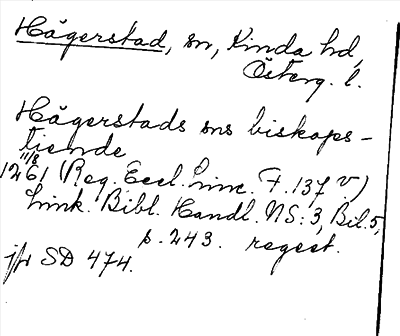 Hägerstad, sn, Kinda hd,
Österg. l.
Hägerstads sns biskops-
tiende
11/8
1261 (Reg. Eccl. Linc. F. 137 v)
Link. Bibl. Handl. NS: 3, Bil. 5,
p. 243. regest.
jfr SD 474.